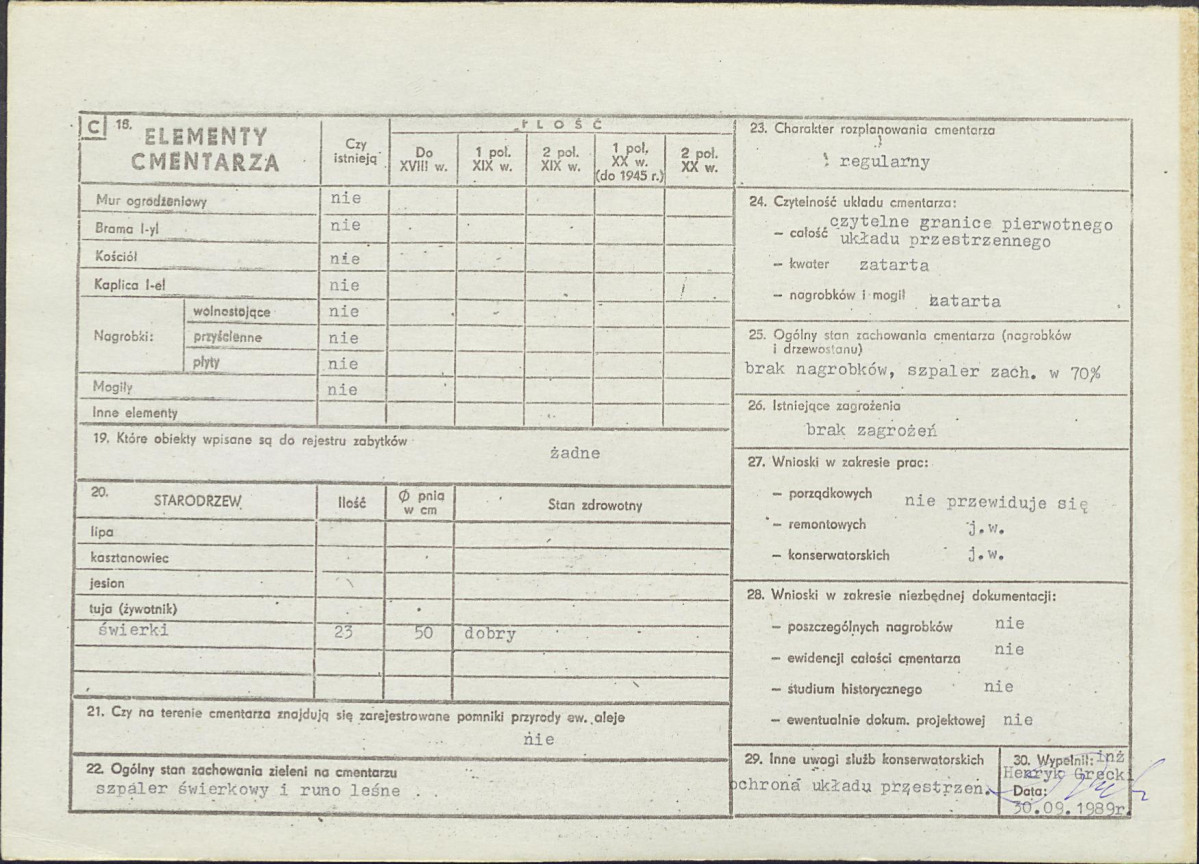 C 18. ELEMENTY CMENTARZA
Czy istnieją
ILOŚĆ
Do XVIII w.
1 poł. XIX w.
2 poł. XIX w.
1 poł. XX w. (do 1945 r.)
2 poł. XX w.
Mur ogrodzeniowy nie
Brama I-yl nie
Kościół nie
Kaplica I-el nie
Nagrobki:
wolnostojące nie
przyścienne nie
płyty nie
Mogiły nie
Inne elementy
19. Które obiekty wpisane są do rejestru zabytków
żadne
20. STARODRZEW Ilość Ø pnia w cm Stan zdrowotny
lipa
kasztanowiec
jesion
tuja (żywotnik)
świerki 23 50 dobry
21. Czy na terenie cmentarza znajdują się zarejestrowane pomniki przyrody ew. aleje
nie
22. Ogólny stan zachowania zieleni na cmentarzu
szpaler świerkowy i runo leśne
23. Charakter rozplanowania cmentarza
regularny
24. Czytelność układu cmentarza:
– całość czytelne granice pierwotnego
układu przestrzennego
– kwater zatarta
– nagrobków i mogił zatarta
25. Ogólny stan zachowania cmentarza (nagrobków
i drzewostanu)
brak nagrobków, szpaler zach. w 70%
26. Istniejące zagrożenia
brak zagrożeń
27. Wnioski w zakresie prac:
– porządkowych nie przewiduje się
– remontowych j.w.
– konserwatorskich j.w.
28. Wnioski w zakresie niezbędnej dokumentacji:
– poszczególnych nagrobków nie
– ewidencji całości cmentarza nie
– studium historycznego nie
– ewentualnie dokum. projektowej nie
29. Inne uwagi służb konserwatorskich
ochrona układu przestrzen.
30. Wypełnił: inż
Henryk Grecki
Data:
30.09.1989r.